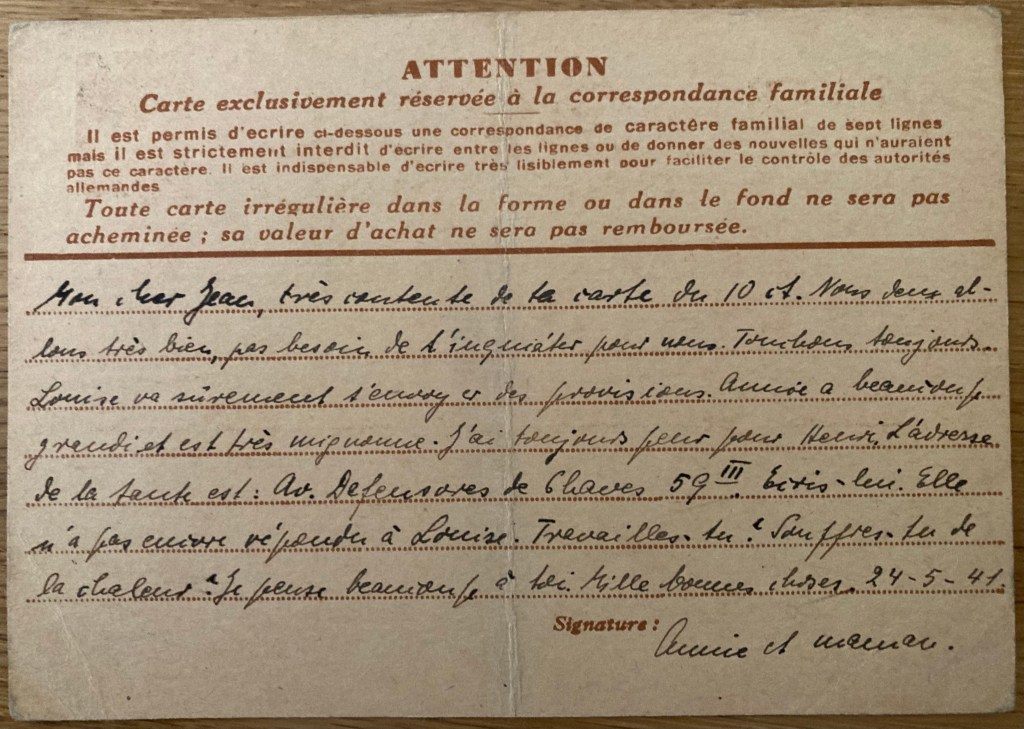 ATTENTION
Carte exclusivement réservée à la correspondance familiale
Il est permis d'ecrire ci-dessous une correspondance de caractère familial de sept lignes
mais il est strictement interdit d'écrire entre les lignes ou de donner des nouvelles qui n'auraient
pas ce caractère. Il est indispensable d'ecrire très lisiblement pour faciliter le contrôle des autorités
allemandes
Toute carte irrégulière dans la forme ou dans le fond ne sera pas
acheminée ; sa valeur d'achat ne sera pas remboursée.
Mon cher Jean, très contente de ta carte du 10 ct. Nous deux al-
lons très bien, pas besoin de t'inquiéter pour nous. toujours.
Louise va sûrement t'envoyer des provisions. Annie a beaucoup
grandi et est très mignonne. J'ai toujours peur pour Henri. L'adresse
de la tante est : Av. Defensores de Chaves 59 III. Ecris-lui. Elle
n'a pas encore répondu à Louise. Travailles-tu ? Souffres-tu de
la chaleur ? Je pense beaucoup à toi. Mille bonnes choses. 24-5-41.
Signature :
Annie et maman.